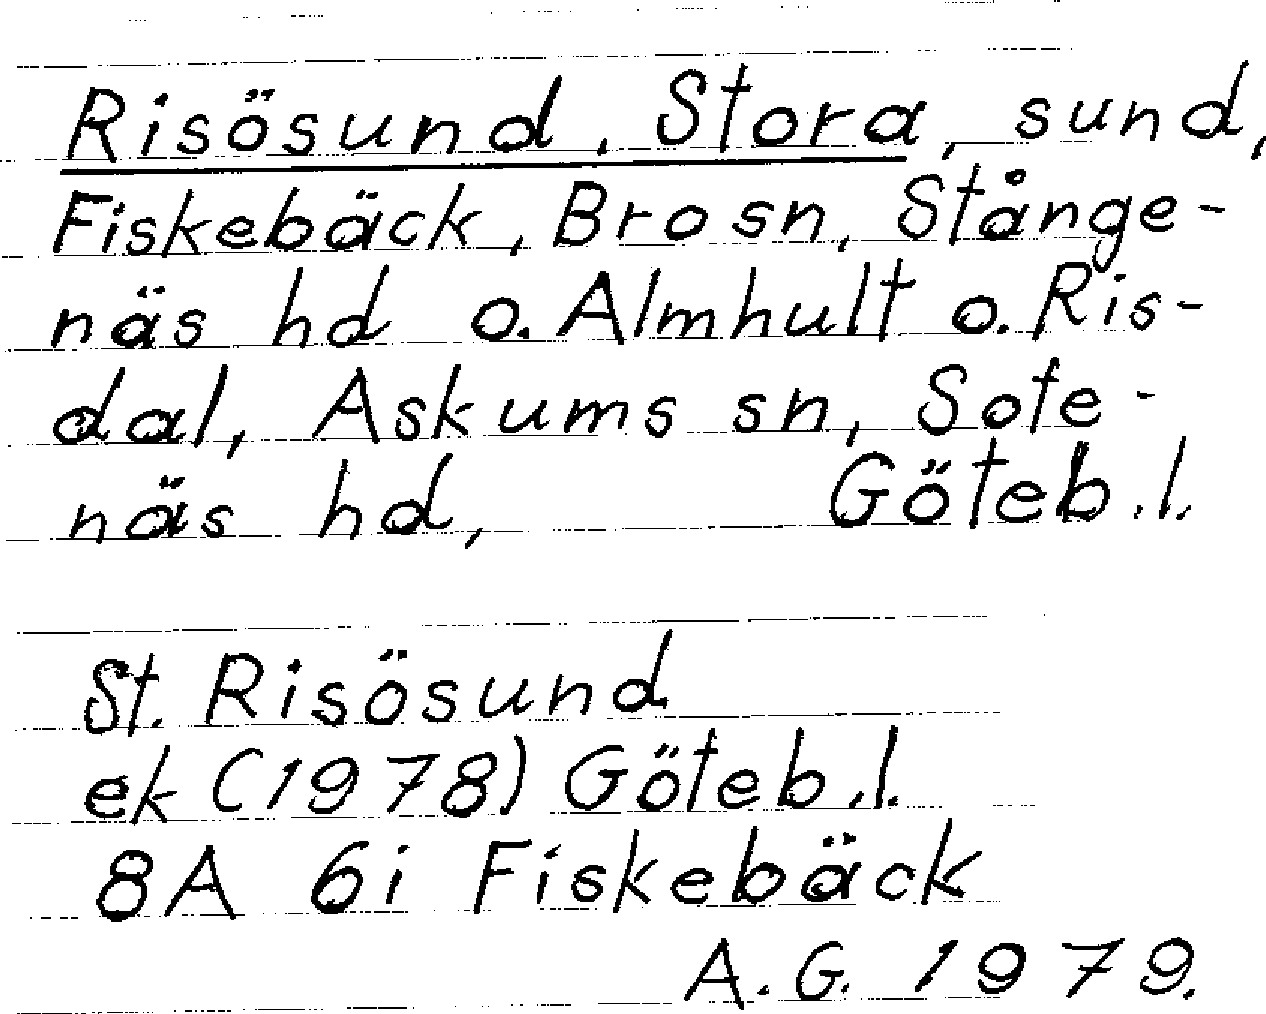 Risösund, Stora, sund,
Fiskebäck, Bro sn, Stånge-
näs hd o. Almhult o. Ris-
dal, Askums sn, Sote-
näs hd, Göteb.l.
St. Risösund
ek (1978) Göteb.l.
8A 6i Fiskebäck
A.G. 1979.